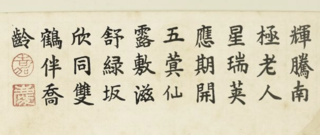 輝騰南
極老人
星瑞英
應期開
五蓂仙
露敷滋
舒緑坂
欣同雙
鶴伴喬
齡